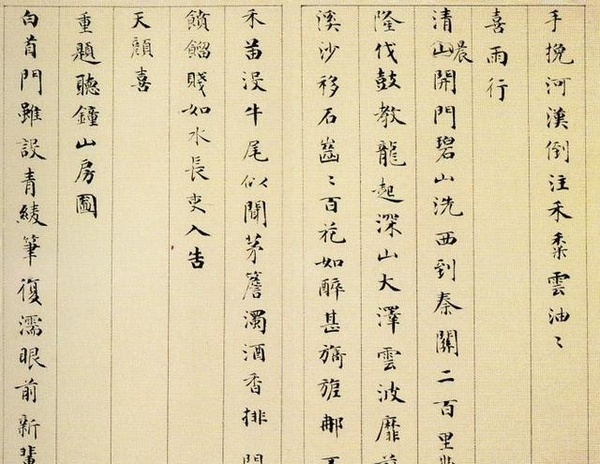 手挽河漢倒注禾黍雲油〻
喜雨行
清山晨開門碧山洗西到秦關二百里
隆伐鼓教龍起深山大澤雲波靡
溪沙移石齒〻百花如醉甚旖旎那
禾苗没牛尾似聞茅簷濁酒香排
饙餾賤如水長吏入告
天顏喜
重題聽鐘山房圖
白首門雖設青綾筆復濡眼前新輩